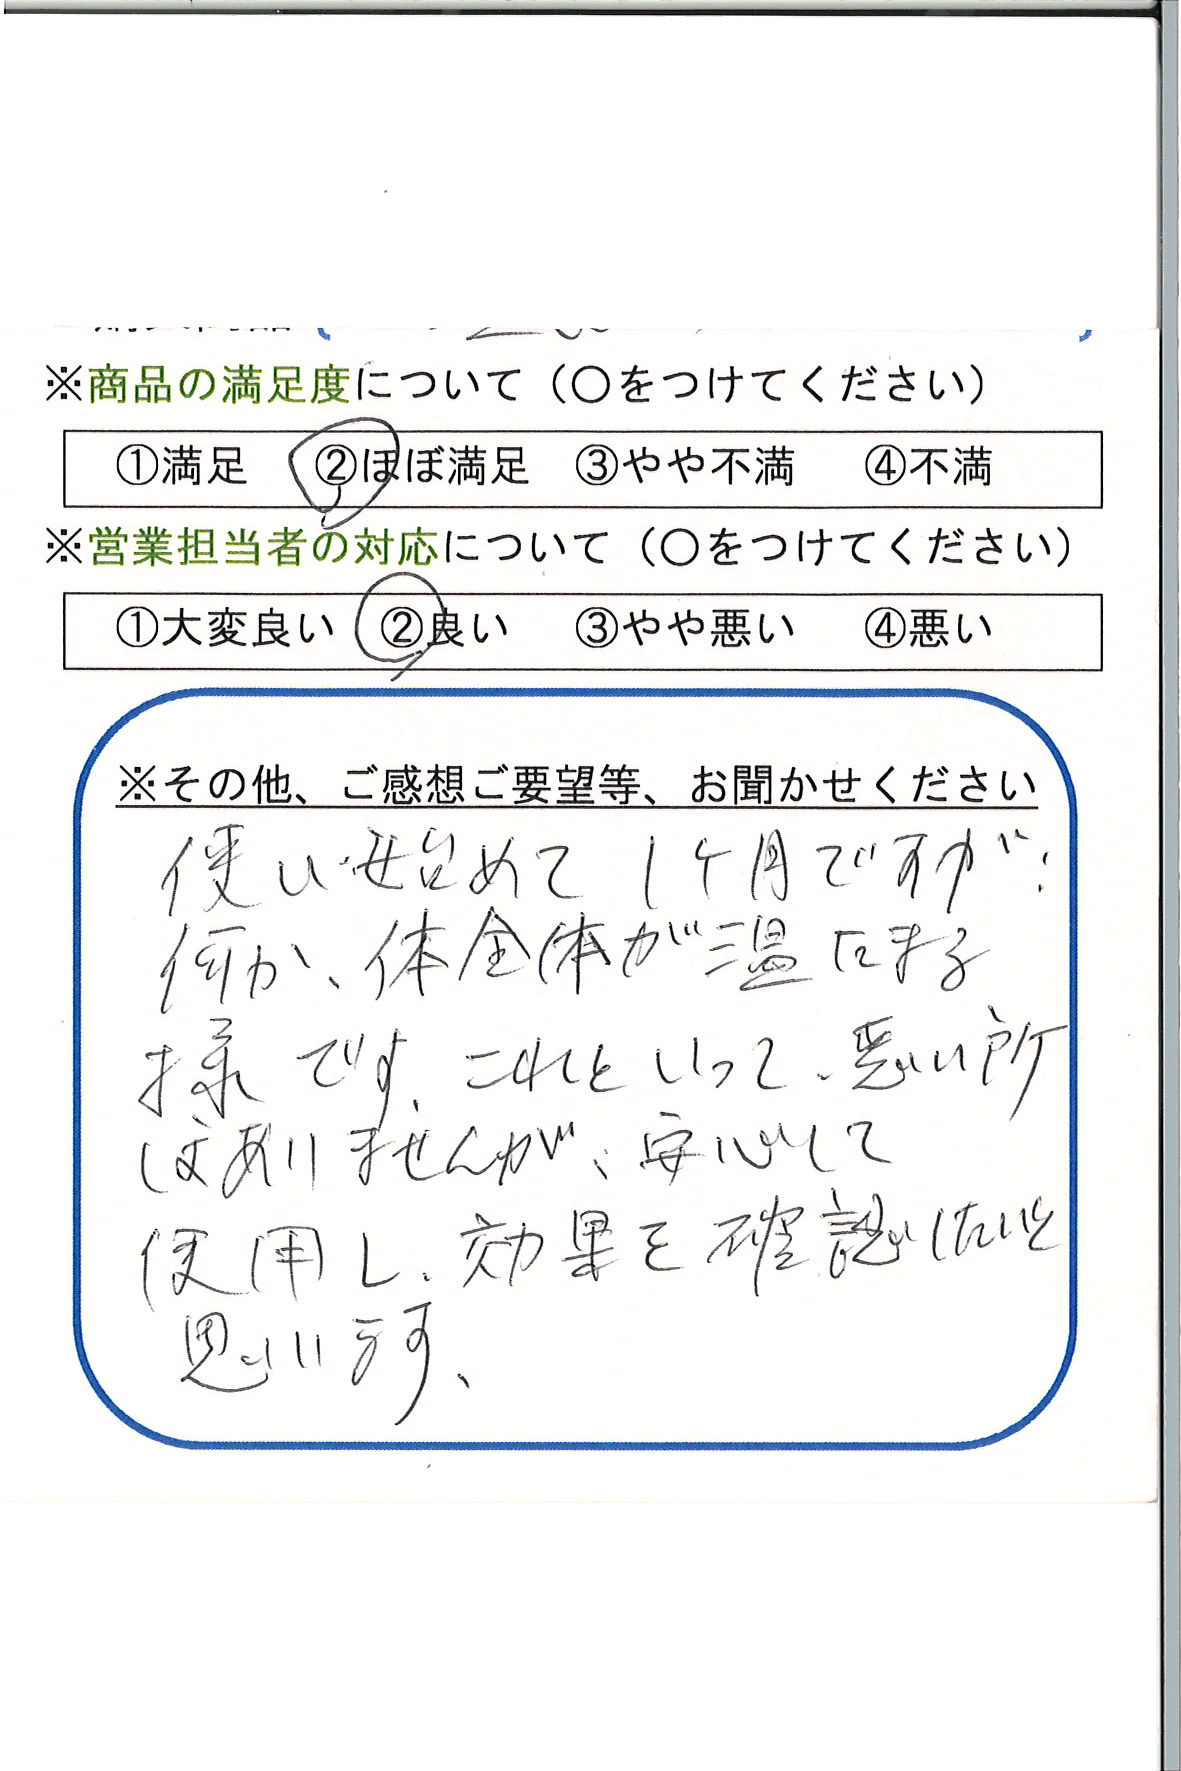 ※商品の満足度について（〇をつけてください）
①満足　②ほぼ満足　③やや不満　④不満
※営業担当者の対応について（〇をつけてください）
①大変良い　②良い　③やや悪い　④悪い
※その他、ご感想ご要望等、お聞かせください
使い始めて1ケ月ですが、
何か、体全体が温たまる
様です、これといって、悪い所
はありませんが、安心して
使用し、効果を確認したいと
思います、